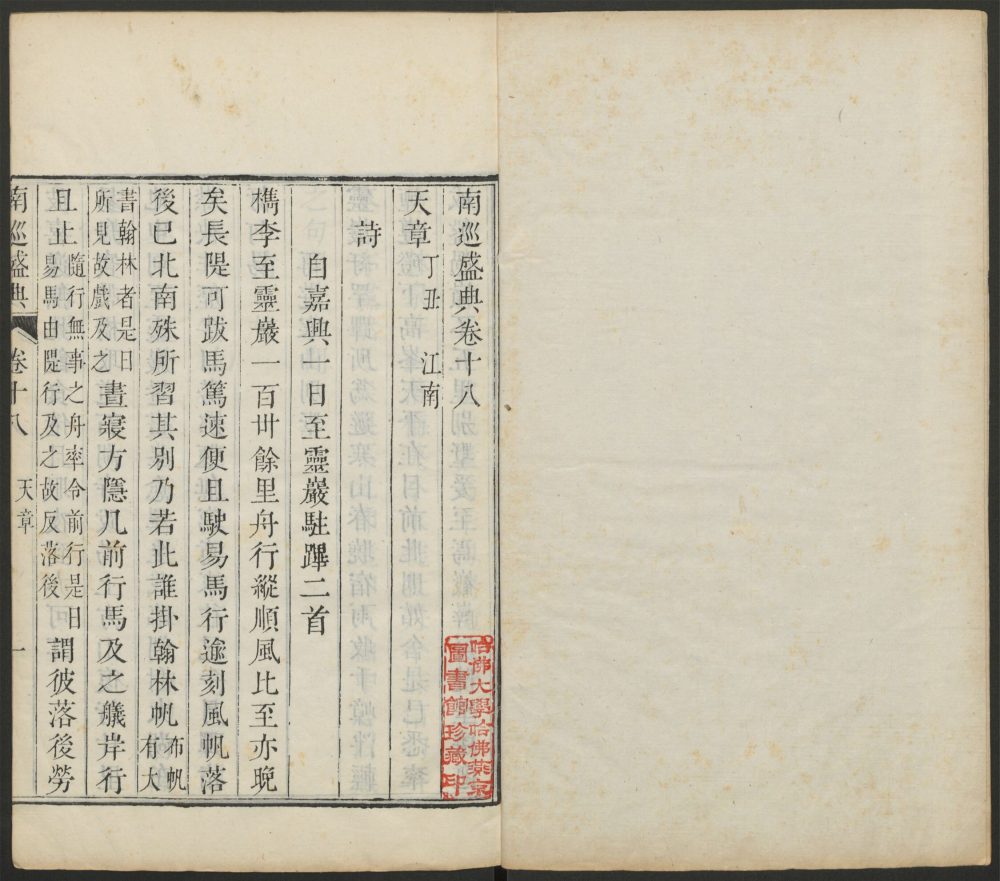 南巡盛典卷十八
天章丁丑 江南
詩
自嘉興一日至靈巖駐蹕二首
檇李至靈巖一百卅餘里舟行縱順風比至亦晚
矣長隄可跋馬篤速便且駛易馬行逾刻風帆落
後已北南殊所習其別乃若此誰掛翰林帆布帆有大
書翰林者是日所見故戲及之晝寢方隱几前行馬及之艤岸行
且止隨行無事之舟率令前行是日易馬由隄行及之故反落後謂彼落後勞
南巡盛典 卷十八 天章 一
哈佛大學哈佛燕京
圖書館珍藏印